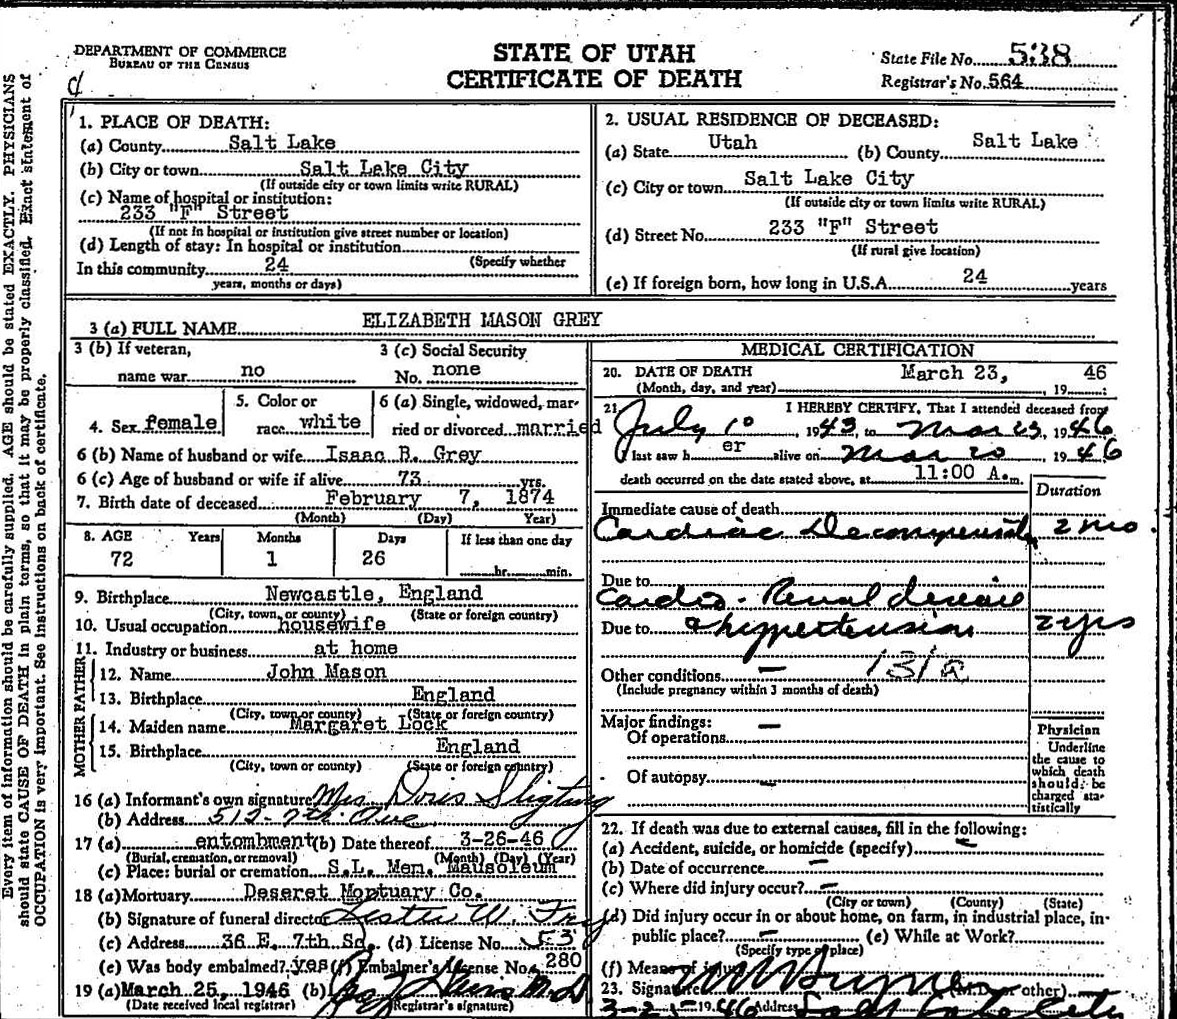 DEPARTMENT OF COMMERCE
BUREAU OF THE CENSUS
STATE OF UTAH
CERTIFICATE OF DEATH
State File No. 538
Registrar's No. 564
Every item of information should be carefully supplied. AGE should be stated EXACTLY. PHYSICIANS
should state CAUSE OF DEATH in plain terms, so that it may be properly classified. Exact statement of
OCCUPATION is very important. See instructions on back of certificate.
1. PLACE OF DEATH:
(a) County Salt Lake
(b) City or town Salt Lake City
(If outside city or town limits write RURAL)
(c) Name of hospital or institution:
233 "F" Street
(If not in hospital or institution give street number or location)
(d) Length of stay: In hospital or institution
(Specify whether
In this community 24
years, months or days)
2. USUAL RESIDENCE OF DECEASED:
(a) State Utah (b) County Salt Lake
(c) City or town Salt Lake City
(If outside city or town limits write RURAL)
(d) Street No. 233 "F" Street
(If rural give location)
(e) If foreign born, how long in U.S.A. 24 years
3 (a) FULL NAME ELIZABETH MASON GREY
3 (b) If veteran,
name war no
3 (c) Social Security
No. none
4. Sex female
5. Color or
race white
6 (a) Single, widowed, mar-
ried or divorced married
6 (b) Name of husband or wife Isaac B. Grey
6 (c) Age of husband or wife if alive 73 yrs.
7. Birth date of deceased February 7, 1874
(Month) (Day) Year)
8. AGE Years Months Days If less than one day
72 1 26 hr. min.
9. Birthplace Newcastle, England
(City, town, or county) (State or foreign country)
10. Usual occupation housewife
11. Industry or business at home
FATHER
12. Name John Mason
13. Birthplace England
(City, town or county) (State or foreign country)
MOTHER
14. Maiden name Margaret Lock
15. Birthplace England
(City, town or county) (State or foreign country)
16 (a) Informant's own signature Mrs Doris
(b) Address 512- 7th Ave
17 (a) entombment (b) Date thereof 3-26-46
(Burial, cremation, or removal) (Month) (Day) (Year)
(c) Place: burial or cremation S.L. Mem. Mausoleum
18 (a) Mortuary Deseret Mortuary Co.
(b) Signature of funeral director Lester W. Fry
(c) Address 36 E. 7th So. (d) License No. 53
(e) Was body embalmed? yes (f) Embalmer's License No. 280
19 (a) March 25, 1946 (b) M.D
(Date received local registrar) (Registrar's signature)
MEDICAL CERTIFICATION
20. DATE OF DEATH March 23, 46
(Month, day, and year) , 19
21. I HEREBY CERTIFY, That I attended deceased from
July 10, 1943, to Mar 23, 1946
I last saw h er alive on Mar 20 1946
death occurred on the date stated above, at 11:00 A.m.
Duration
Immediate cause of death
Cardiac Decompensation 2 mo.
Due to
Cardio-Renal disease
Due to & hypertension 2 yrs
Other conditions - 131a
(Include pregnancy within 3 months of death)
Major findings:
Of operations -
Of autopsy -
Physician
Underline
the cause to
which death
should be
charged sta-
tistically
22. If death was due to external causes, fill in the following:
(a) Accident, suicide, or homicide (specify) -
(b) Date of occurrence -
(c) Where did injury occur? -
(City or town) (County) (State)
(d) Did injury occur in or about home, on farm, in industrial place, in-
public place? - (e) While at Work?
(Specify type of place)
(f) Means of injury
23. Signature (M.D. or other)
3-25-1946 Address Salt Lake City